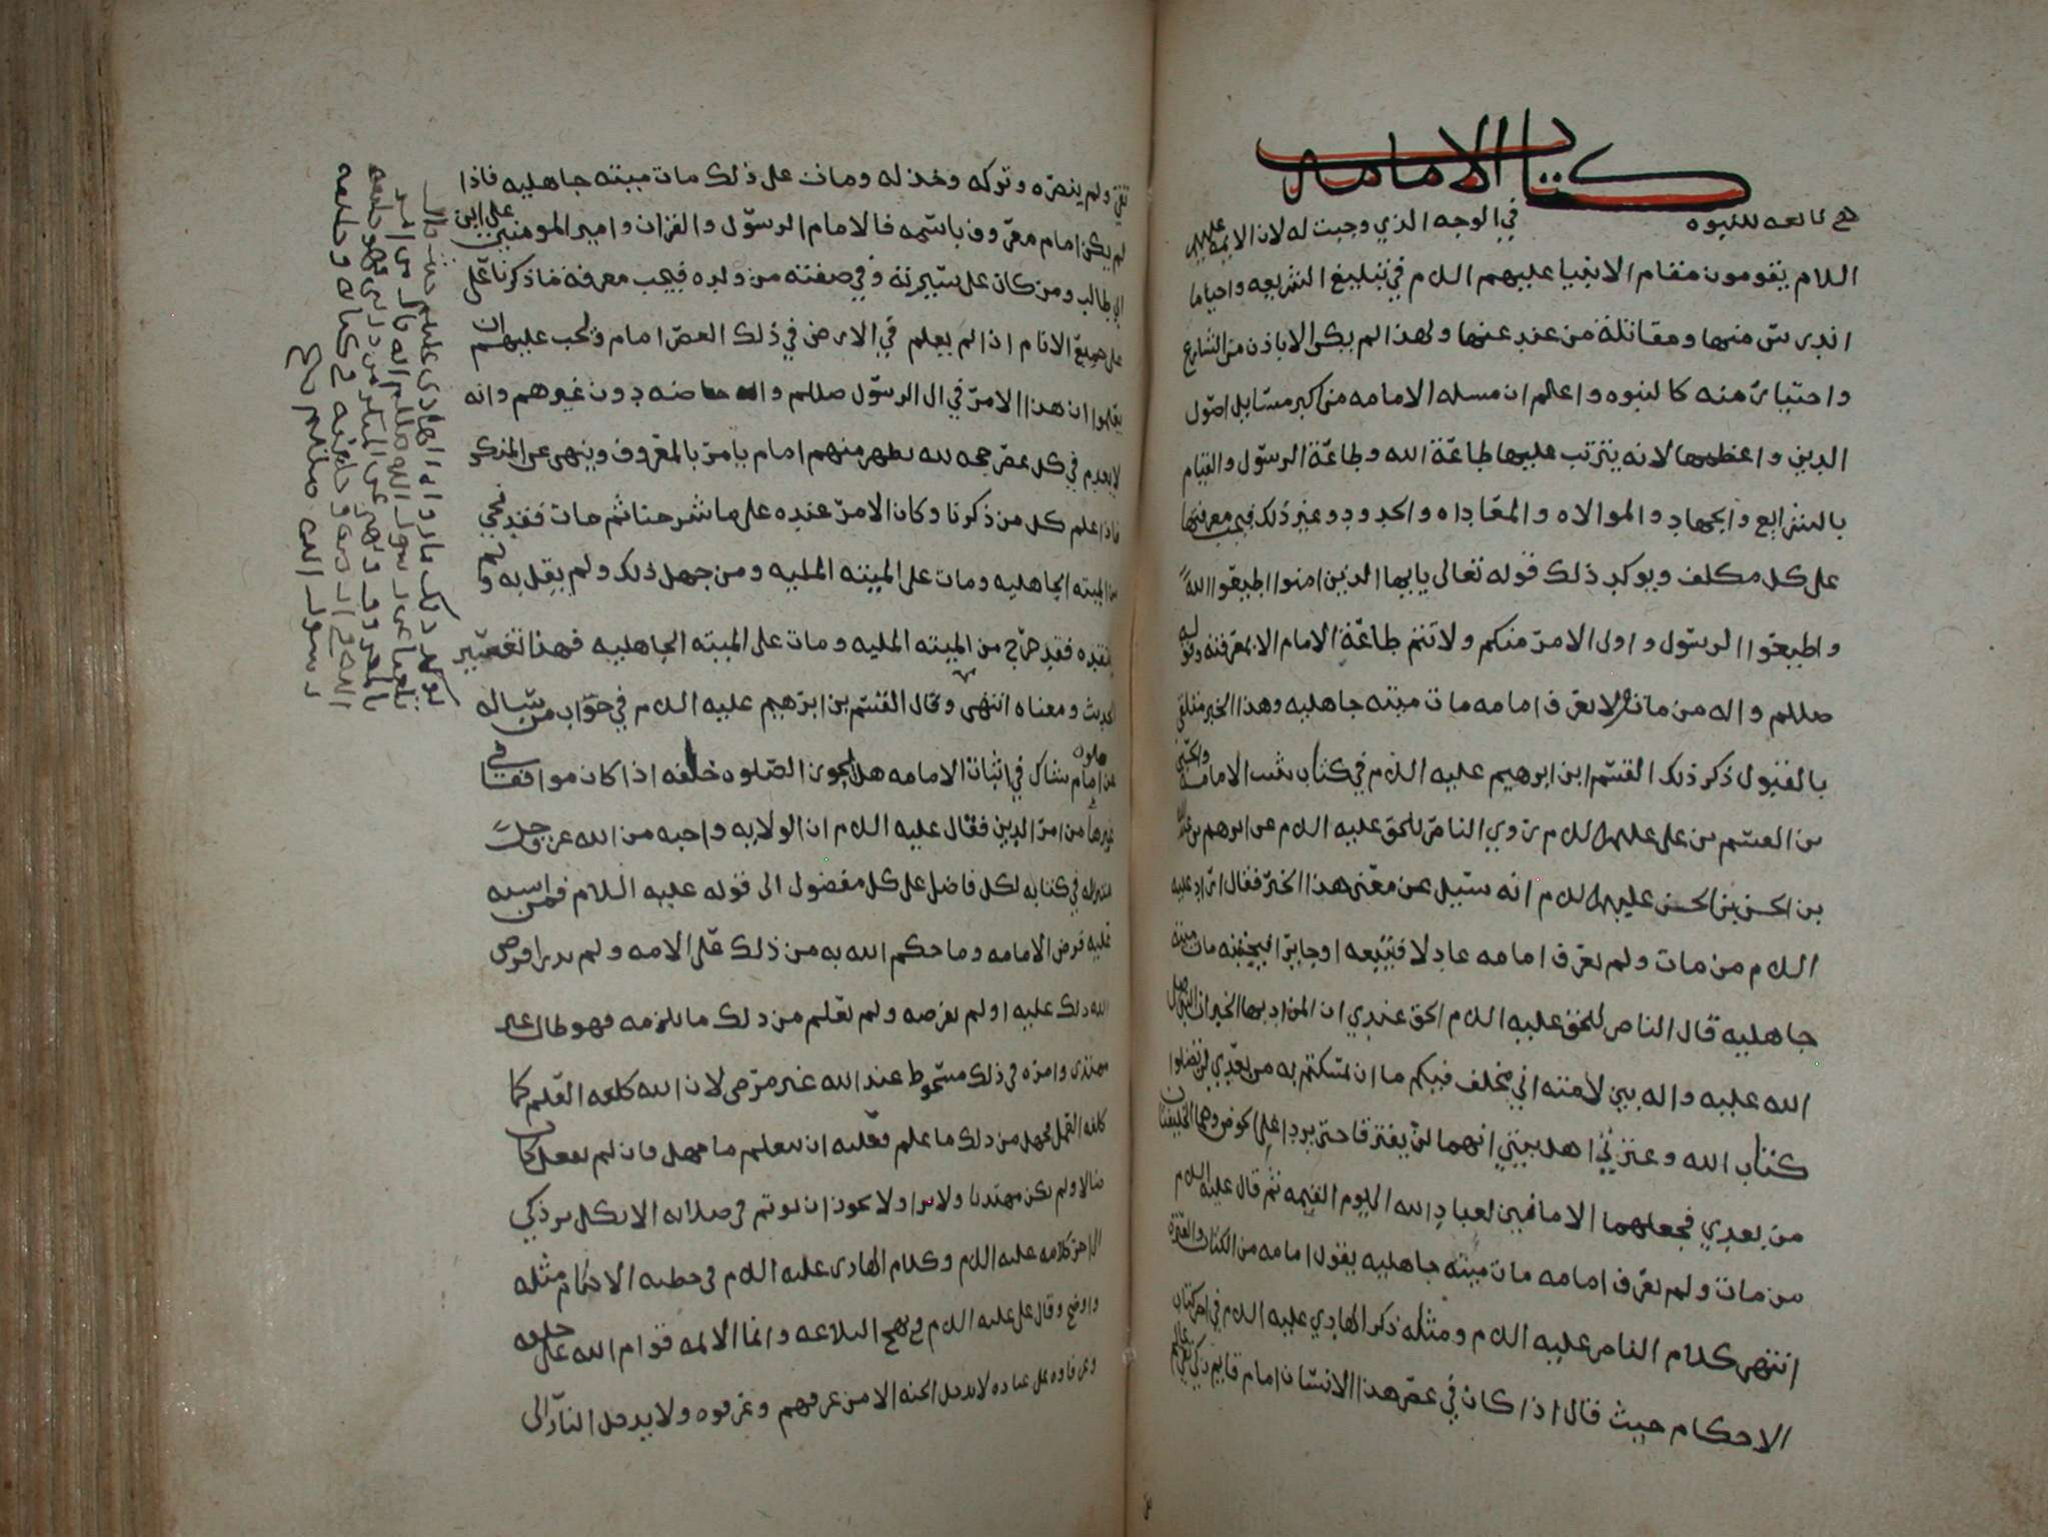 كتاب الامامه
هي تابعه للنبوه في الوجه الذي وجبت له لان الايمه عليهم
السلام يقومون مقام الانبيا عليهم السلام في تبليغ الشريعه واحيا ما
اندرس منها ومقاتلة من عند عنها ولهذا لم يكن الا باذن من الشارع
واختيار منه كالنبوه واعلم ان مسله الامامه من اكبر مسايل اصول
الدين واعظمها لانه يترتب عليها طاعة الله وطاعة الرسول والقيام
بالشرايع والجهاد والموالاه والمعاداه والحدود وغير ذلك فيجب معرفتها
على كل مكلف ويوكد ذلك قوله تعالى يايها الذين امنوا اطيعوا الله
واطيعوا الرسول واولى الامر منكم ولا تتم طاعة الامام الا بمعرفته وقوله
صللم واله من مات لا يعرف امامه مات ميتته جاهليه وهذا الخبر متلقى
بالقبول ذكر ذلك القسم ابن ابرهيم عليه السلام في كتاب تثبيت الامامه
بن القسم بن على عليهم السلام روي الناصر للحق عليه السلام عن ابرهيم بن
بن الحسن بن الحسن عليهم السلام انه سئيل عن معنى هذا الخبر فقال اراد عليه
السلام من مات ولم يعرف امامه عادلا فيتبعه او جايرا فيجتنبه مات ميتته
جاهليه قال الناصر للحق عليه السلام الحق عندي ان المراد بهذا الخبر ان النبي صلى
الله عليه واله بين لامته اني مخلف فيكم ما ان تمسكتم به من بعدي لن تضلوا
كتاب الله وعترتي اهل بيتي انهما لن يفترقا حتى يردا علي الحوض وهما الخليفتان
من بعدي فجعلهما الامامين لعباد الله الى يوم القيمه ثم قال عليه السلام
من مات ولم يعرف امامه مات ميتته جاهليه يقول امامه من الكتاب والعترة
انتهى كلام الناصر عليه السلام ومثله ذكر الهادي عليه السلام في اخر كتاب
الاحكام حيث قال اذا كان في عصر هذا الانسان امام قايم زكي تقي عالم
نقي ولم ينصره وتركه وخذله ومات على ذلك مات ميتته جاهليه فاذا
لم يكن امام معروف باسمه فالامام الرسول والقران وامير المومنين على ابن
ابي طالب ومن كان على سيرته وفي صفته من ولده فيجب معرفة ما ذكرنا على
على جميع الانام اذا لم يعلم في الارض في ذلك العصر امام ويجب عليهم ان
يعلموا ان هذا الامر في ال الرسول صللم واله خاصه دون غيرهم وانه
لا يعدم في كل عصر حجه لله يظهر منهم امام يامر بالمعروف وينهى عن المنكر
فاذا علم كل من ذكرنا وكان الامر عنده على ما شرحنا ثم مات فقد نجى
من الميته الجاهليه ومات على الميته المليه ومن جهل ذلك ولم يقل به ولم
يعتقده فقد خرج من الميته المليه ومات على الميته الجاهليه فهذا تفسير
الحديث ومعناه انتهى وقال القسم بن ابرهيم عليه السلام في جواب من ساله
عن امام صلوه شاك في اثبات الامامه هل يجوز الصلوه خلفه اذا كان موافقا في
غيرها من امر الدين فقال عليه السلام ان الولايه واجبه من الله عز وجل
انزاله في كتابه لكل فاضل على كل مفضول الى قوله عليه السلام فمن
عليه فرض الامامه وما حكم الله به من ذلك على الامه ولم ير فرض
الله ذلك عليه اولم يفرضه ولم يعلم من ذلك ما يلزمه فهو ضال غير
مهتدى وامره في ذلك مسخوط عند الله غير مرضى لان الله كلفه العلم كما
كلفه العمل فجهل من ذلك ما علم فعليه ان يتعلم ما جهل فان لم يفعل كان
ضالا ولم يكن مهتديا ولا برا ولا يجوز ان يوتم في صلاته الا بكل بر زكي
الى اخر كلامه عليه السلام وكلام الهادى عليه السلام في خطبه الاحكام مثله
واوضح وقال على عليه السلام في نهج البلاغه وانما الائمه قوام الله على خلقه
وعرفاوه على عباده لا يدخل الجنه الا من عرفهم وعرفوه ولا يدخل النار الى
يوكد ذلك ما رواه الهادى عليلم حيث قال
بلغنا عن رسول الله صللم انه قال من امر
بالمعروف ونهى عن المنكر من ذريتي فهو خليفه
الله في ارضه وخليفه كتابه وخليفه
رسول الله صللم تمت